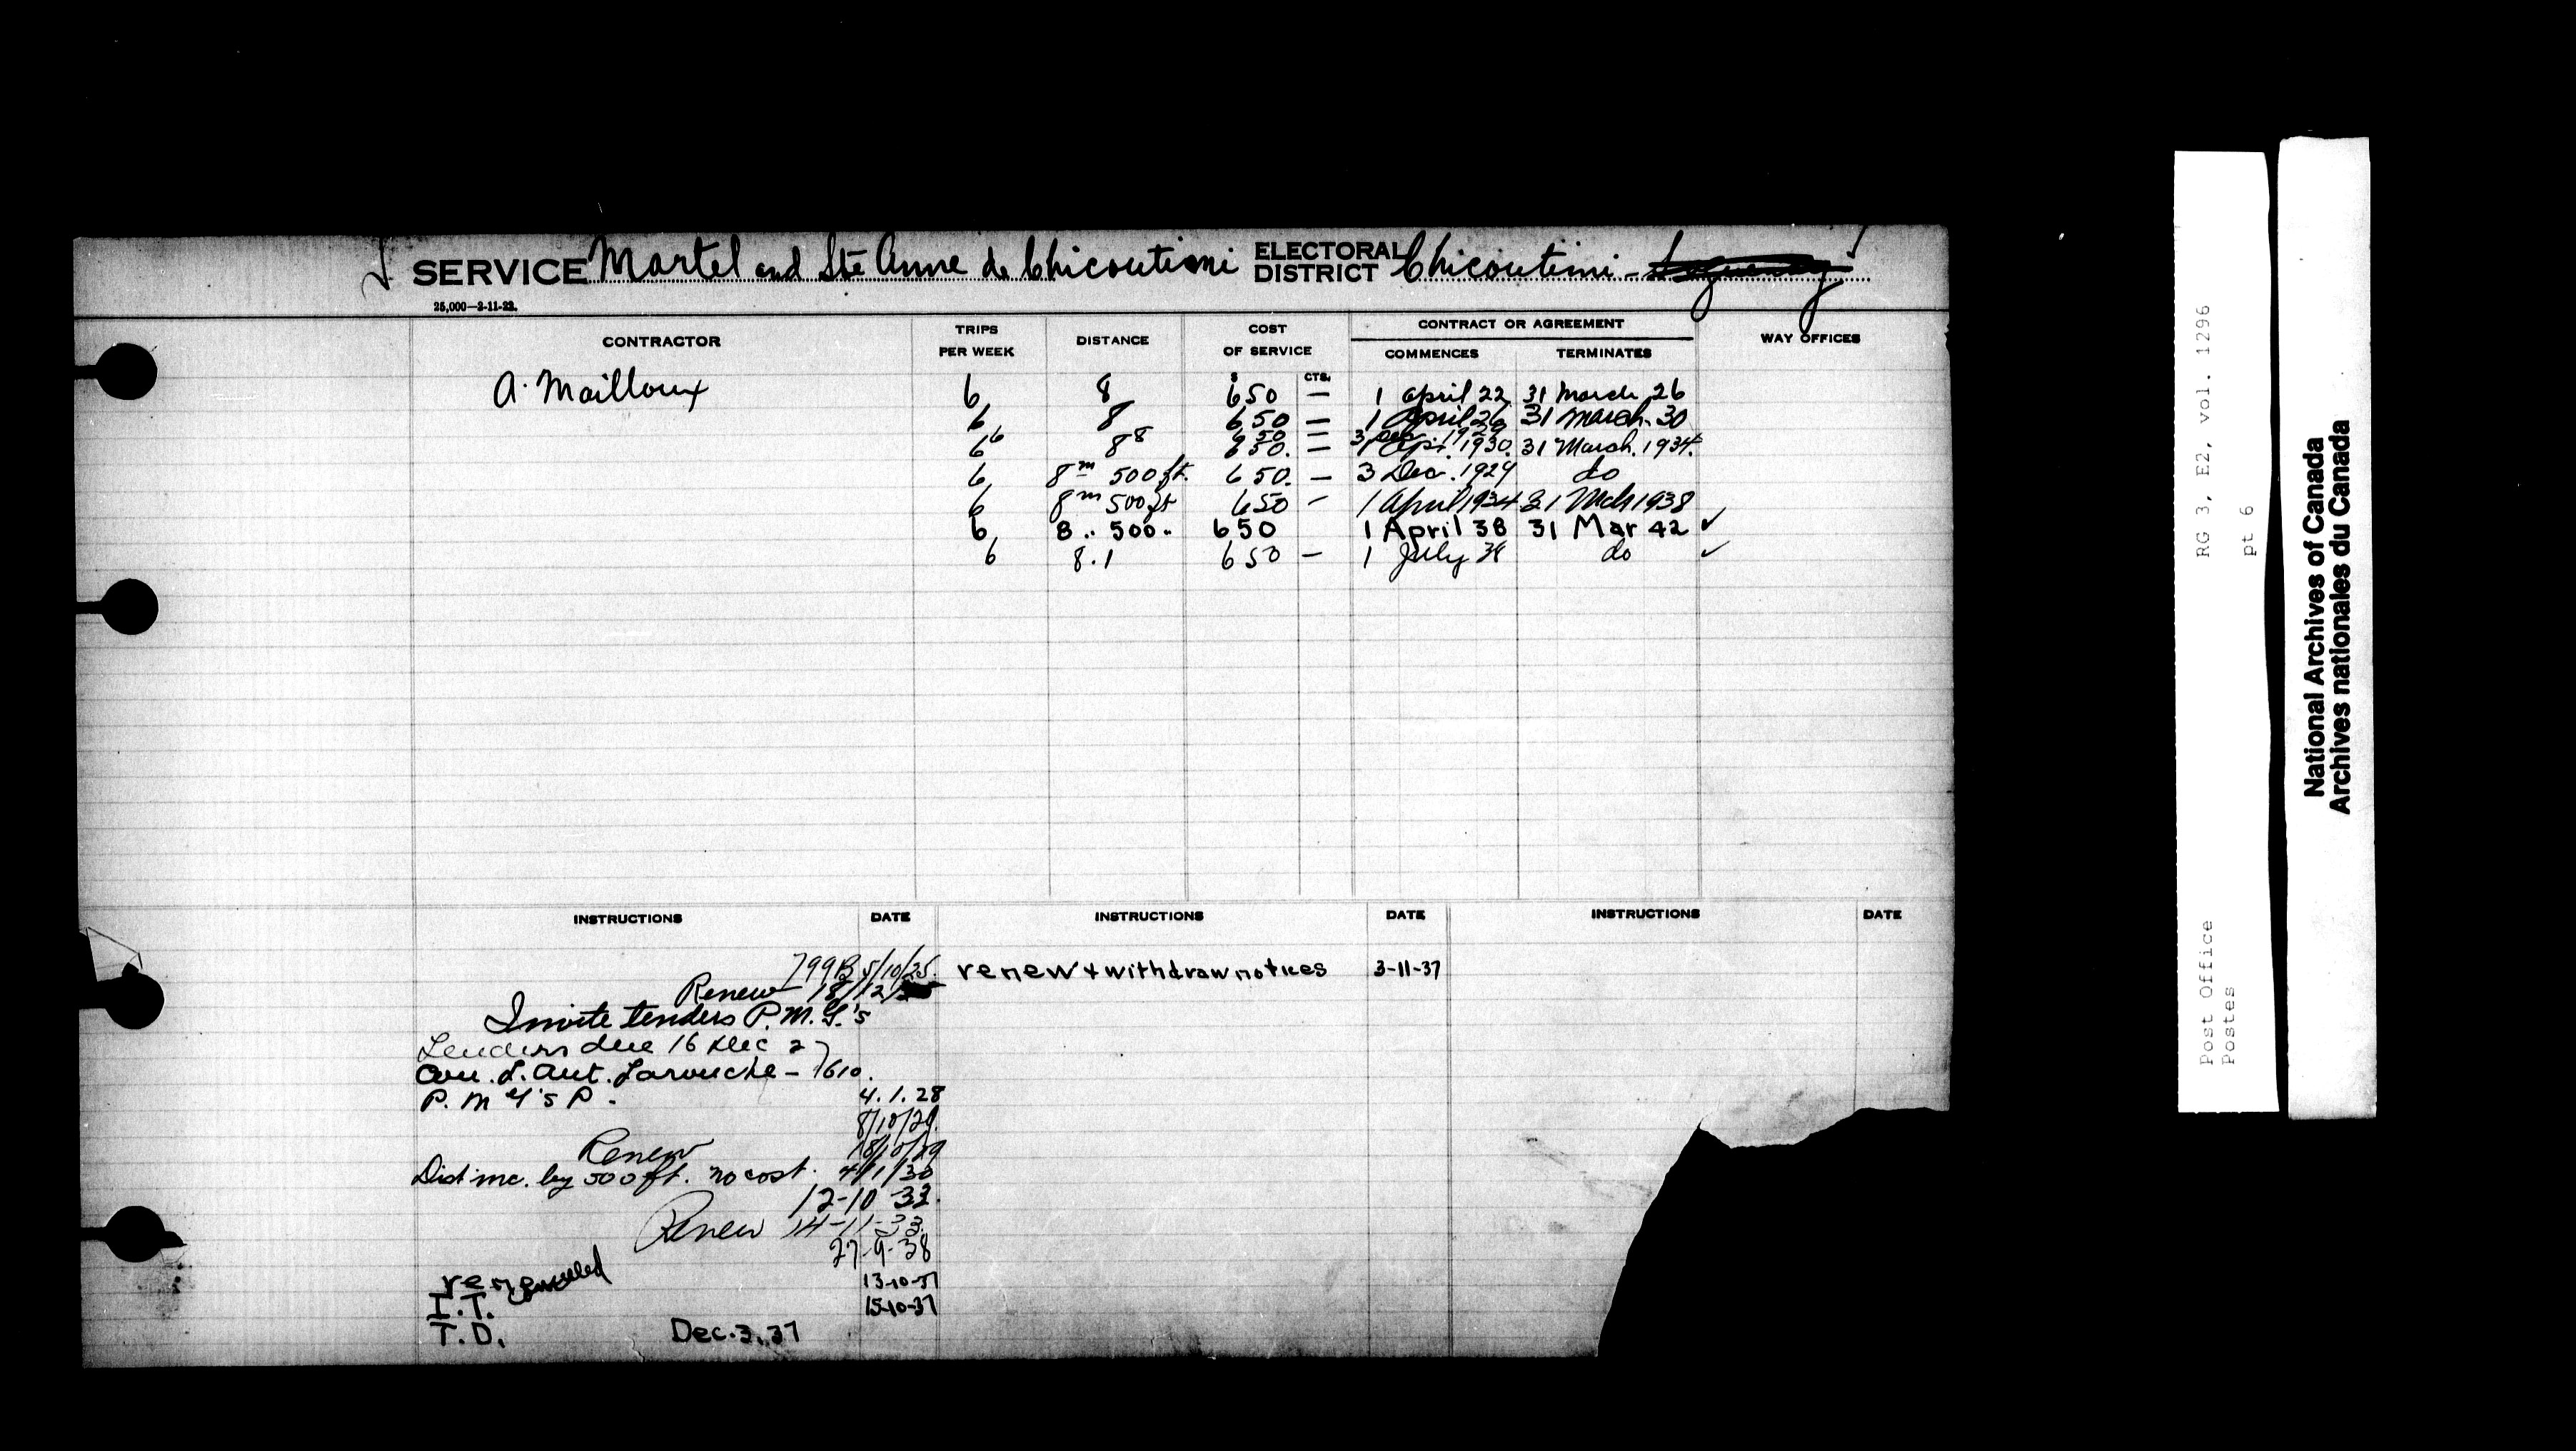 SERVICE Martel and Ste Anne de Chicoutimi ELECTORAL DISTRICT Chicoutimi -
25,000—2-11-22.
CONTRACTOR TRIPS PER WEEK DISTANCE COST OF SERVICE CONTRACT OR AGREEMENT COMMENCES TERMINATES WAY OFFICES
$ CTS.
A. Mailloux 6 8 650 — 1 April 22 31 March 26
6 8 650 — 1 April 26 31 March 30
6 8 650 — 3 Dec. 1929
6 8 650. — 1 Apr. 1930. 31 March. 1934.
6 8m 500 ft. 650. — 3 Dec. 1929 do
6 8m 500 ft 650 — 1 April 1934 31 Mch 1938
6 8 .. 500. 650 1 April 38 31 Mar 42 ✓
6 8.1 650 — 1 July do ✓
INSTRUCTIONS DATE INSTRUCTIONS DATE INSTRUCTIONS DATE
799B 5/10/25. renew + withdraw notices 3-11-37
Renew 18/12/
Invite tenders P.M.G.'s
Tenders due 16 Dec 27
L. Aut. Larouche - 610.
P.M.G's P. 4.1.28
8/10/29
Renew 18/10/29
Dist inc. by 500 ft. no cost. 4/1/30
12-10 33.
Renew 14-11-33.
27-9-38
13-10-37
I.T. 15-10-37
T.D. Dec. 3. 37
RG 3, E2, vol. 1296
pt 6
Post Office
Postes
National Archives of Canada
Archives nationales du Canada